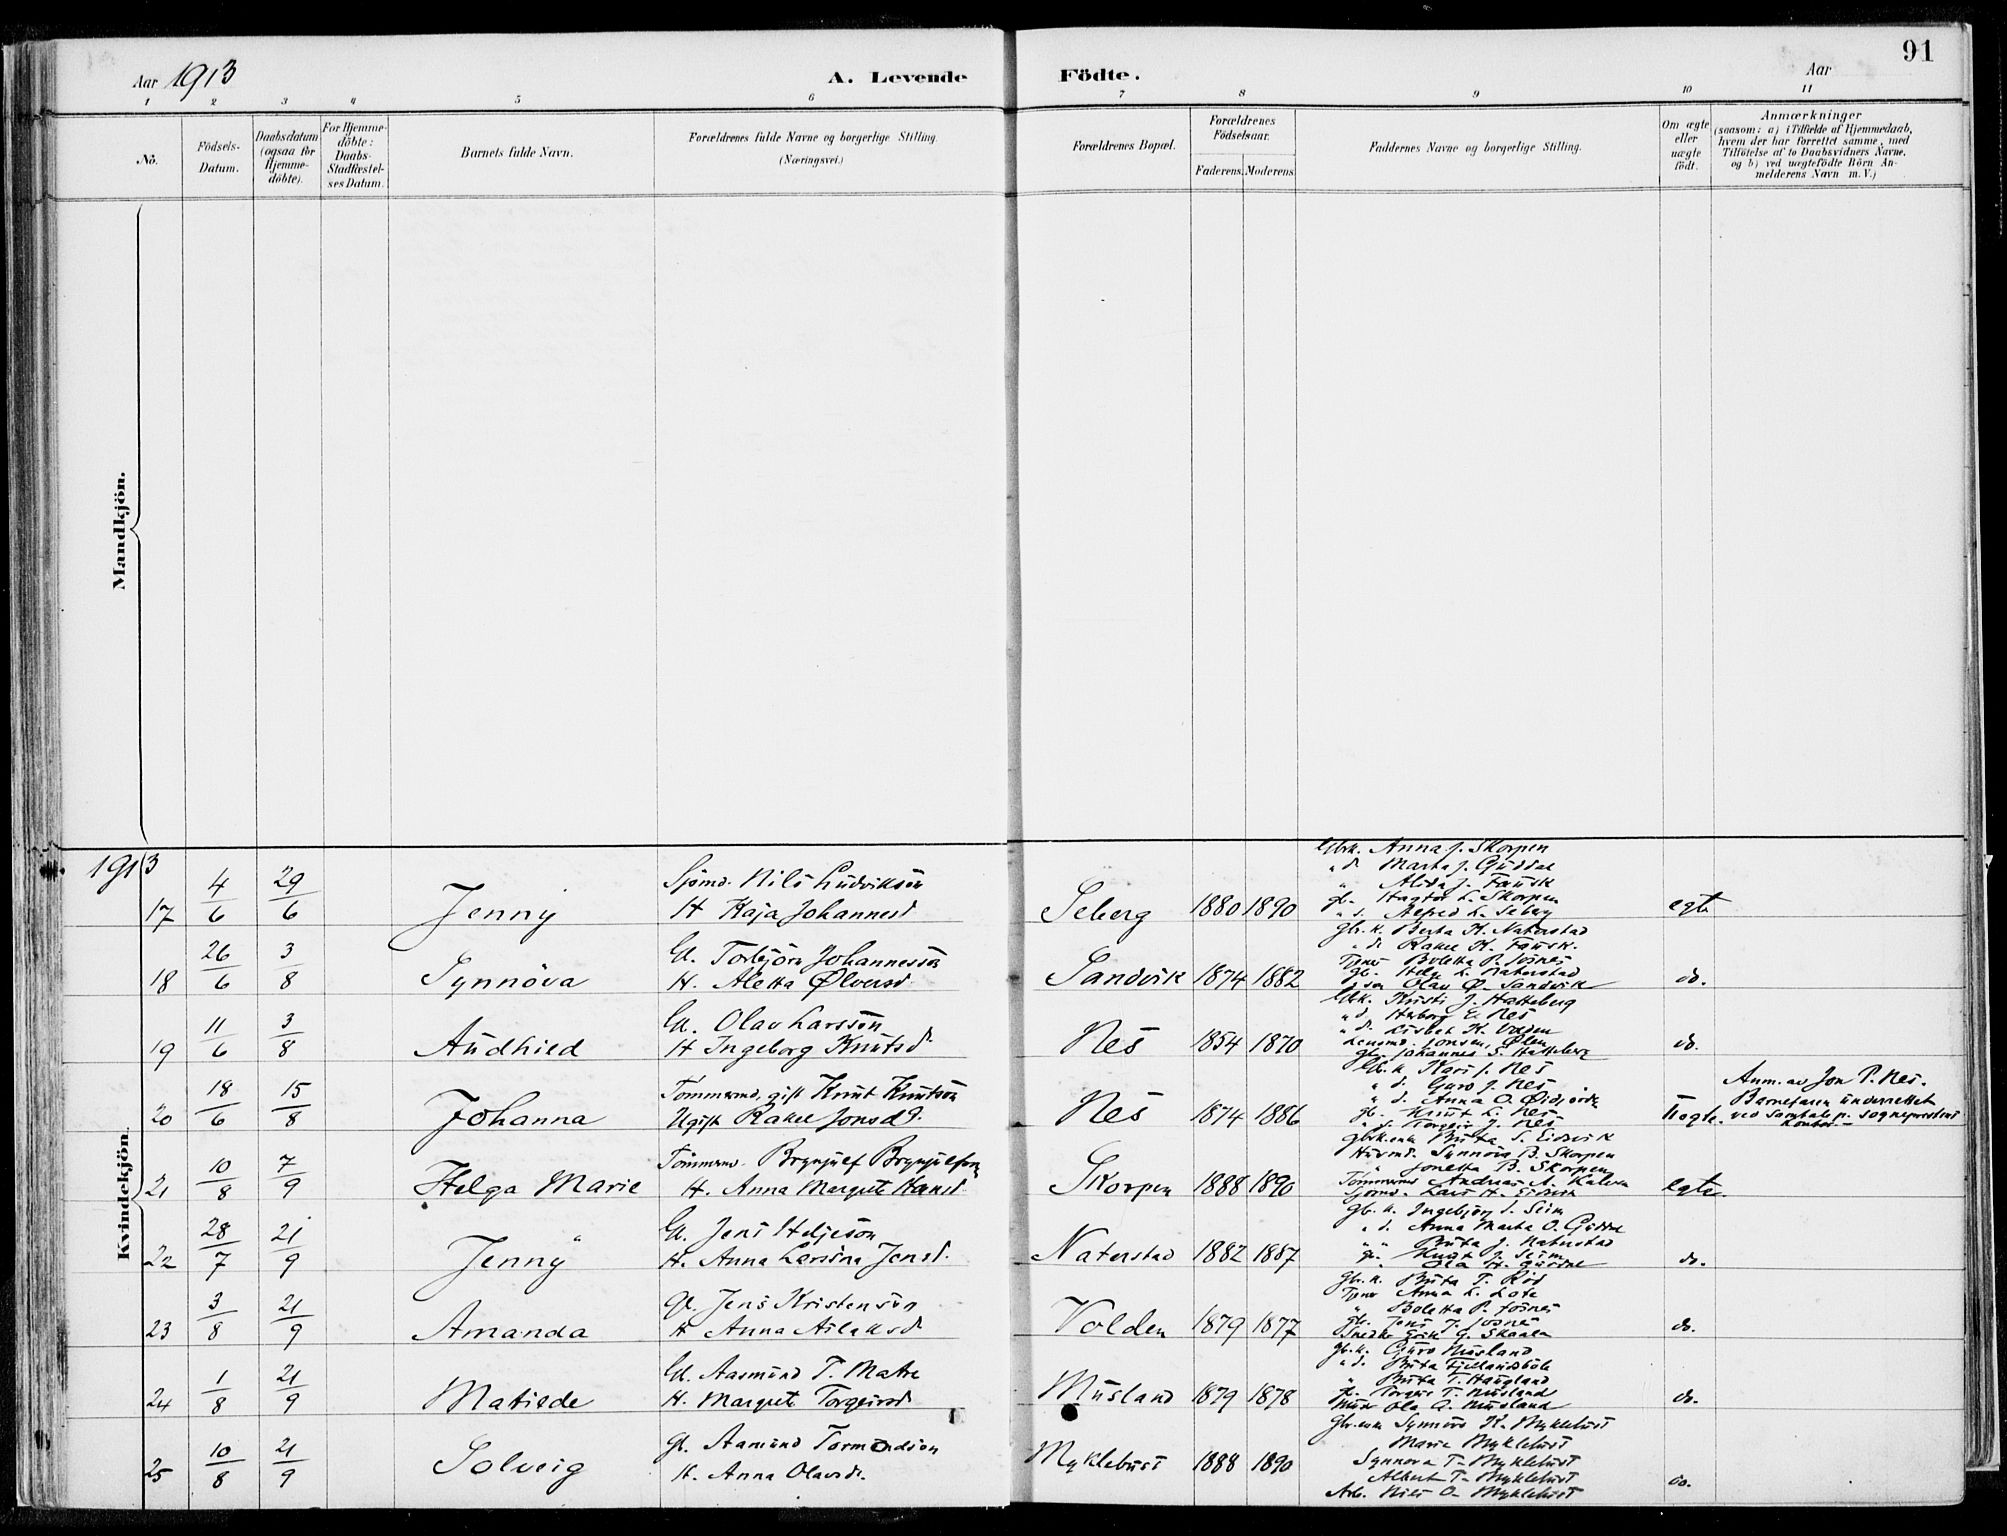 Aar 1913
A. Levende Födte.
Aar
91
1 2 3 4 5 6 7 8 9 10 11
No.
Födsels-Datum.
Daabsdatum (ogsaa for Hjemme-döbte).
For Hjemme-döbte: Daabs-Stadfæstel-ses Datum.
Barnets fulde Navn.
Forældrenes fulde Navne og borgerlige Stilling.
(Næringsvei.)
Forældrenes Bopæl.
Forældrenes Födselsaar.
Faderens. Moderens.
Faddernes Navne og borgerlige Stilling.
Om ægte eller uægte födt.
Anmærkninger
(saasom: a) i Tilfælde af Hjemmedaab,
hvem der har forrettet samme, med
Tilföielse af to Daabsvidners Navne,
og b) ved uægtefödte Börn An-
melderens Navn m. V.)
Mandkjön.
Kvindekjön.
1913
17 4/6 29/6 Jenny
Sjömd. Nils Ludviksön
H Kaja Johannesd
Seberg 1880 1890
Gbrk. Anna J. Skorpen
" d. Marta J. Guddal
" Alida J. Fausk
gb. L. Skorpen
" s. Alfred L. Seberg
egte
18 26/6 3/8 Synnöva
G. Torbjörn Johannessön
H. Aletta Ølversd.
Sandvik 1874 1882
Gbr.k. Berta K. Naterstad
" d. Rakel K. Fausk.
Tjener Boletta P. Josnes
gb. Helge L. Naterstad
" sön Olav Ø. Sandvik
do.
19 11/6 3/8 Audhild
G. Olav Larssön
H Ingeborg Knutsd.
Nes 1854 1870
Gbk. Kristi J. Hatteberg
" d. Herborg E. Nes
" d. Lisbet K. Valen
Lensmd. Jonsen, Ølen
gb. Johannes S. Hatteberg
do.
20 18/6 15/8 Johanna
Tömmermd, gift Knut Knutsön
Ugift Rakel Jonsd.
Nes 1874 1886
Gb.k Kari J. Nes
" d. Guro J. Nes
" d. Anna O. Øidfjorden
gb. Knut L. Nes
" s. Torgeir J. Nes
Uegte.
Anm. av Jon P. Nes.
Barnefaren underrettet
ved samtale p. sogneprestens
kontor. -
21 10/8 7/9 Helga Marie
Tömmermd. Brynjulf Brynjulfsön
H. Anna Margrete Hansd.
Skorpen 1888 1890
Gbrk.enke Brita S. Eidsvik
Husmd. Synnöva B. Skorpen
" Jonetta B. Skorpen
Tömmermd Andreas A. Kalven
Sjömd. Lars H. Eidsvik
Egte.
22 28/7 21/9 Jenny
G. Jens Heljesön
H. Anna Larsina Jensd.
Naterstad 1882 1887
Gb. k. Ingebjörg S. Seim
" d. Anna Marta O. Guddal
" " Brita J. Naterstad
gb. Knut J. Seim
" Ola H. Guddal
do.
23 3/8 21/9 Amanda
G. Jens Kristensön
H Anna Aslaksd.
Volden 1879 1877
Gb. k. Brita T. Röd
Tjener Anna L. Lote
" Boletta P. Josnes
gb. Jens J. Josnes
Snedker Erik G. Skaala
do.
24 1/8 21/9 Matilde
G. Aasmund T. Matre
H. Margrete Torgeirsd
Musland 1879 1878
Gb.k. Guro Musland
" d. Brita Fjellandsböe
" Brita T. Haugland
g. Torgeir T. Musland
Murer Ola A. Musland
do.
25 10/8 21/9 Solveig
G. Aamund Tormodson
H. Anna Olavsdr.
Myklebust 1888 1890
Gbr.enke Synnöve K. Myklebust
Marie Myklebust
Synnöva T. Myklebust
Albert T. Myklebust
Arb. Nils O. Myklebust
do.